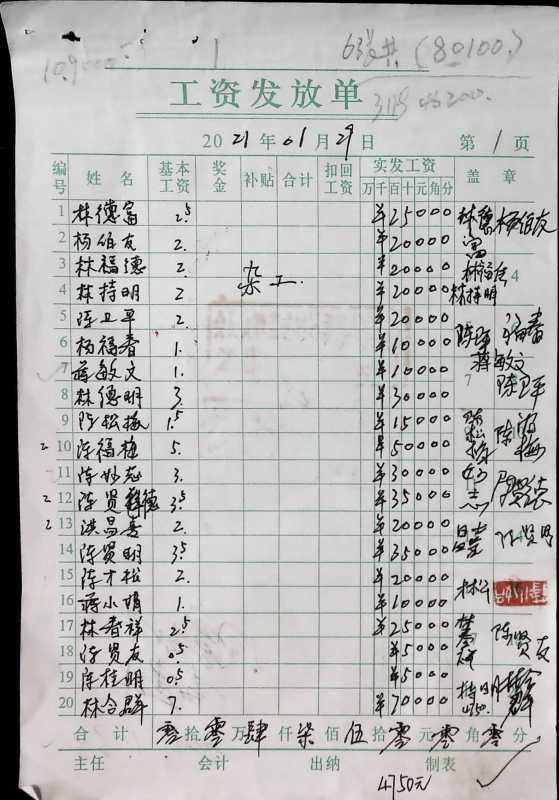 6张共(80100.)
工资发放单
2021年01月29日 第1页
编号 姓名 基本工资 奖金 补贴 合计 扣回工资 实发工资 万千百十元角分 盖章
1 林德富 2.5 ¥25000
2 杨伯友 2. ¥20000 杨伯友
3 林福德 2. ¥20000 林福德
4 林持明 2 杂工. ¥20000 林持明
5 陈卫平 2. ¥20000
6 杨福春 1. ¥10000
7 蒋敏文 1. ¥10000 蒋敏文
8 林德明 3. ¥30000 陈卫平
9 陈松梅 1.5 ¥15000 陈松梅
2 10 陈福梅 5. ¥50000 陈福梅
11 陈妙志 3. ¥30000
2 12 陈贤德 3.5 ¥35000
2 13 洪昌 2. ¥20000
14 陈贤明 3.5 ¥35000 陈贤明
15 陈才松 2. ¥20000
16 蒋小娟 1. ¥10000
17 林春祥 2.5 ¥25000
18 陈贤友 0.5 ¥5000 陈贤友
19 陈桂明 0.5 ¥5000
20 林合群 7. ¥70000
合计 零拾零万肆仟柒佰伍拾零元零角零分
主任 会计 出纳 制表
4750元